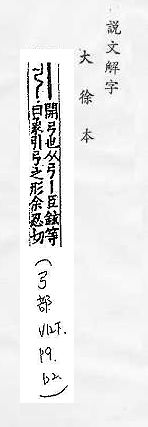 説文解字
大徐本
開弓也从弓丨臣鉉等
曰象引弓之形余忍切
(弓部
V12下.
P9.
b2.)